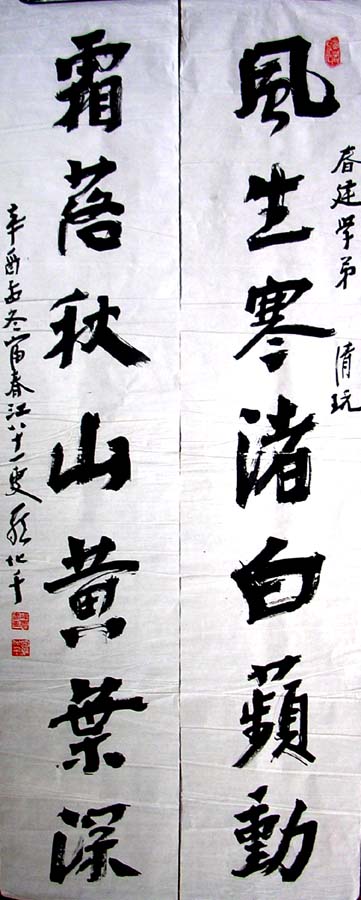 春建学弟 清玩
風生寒渚白蘋動
霜落秋山黄葉深
辛酉冬富春江八十一叟